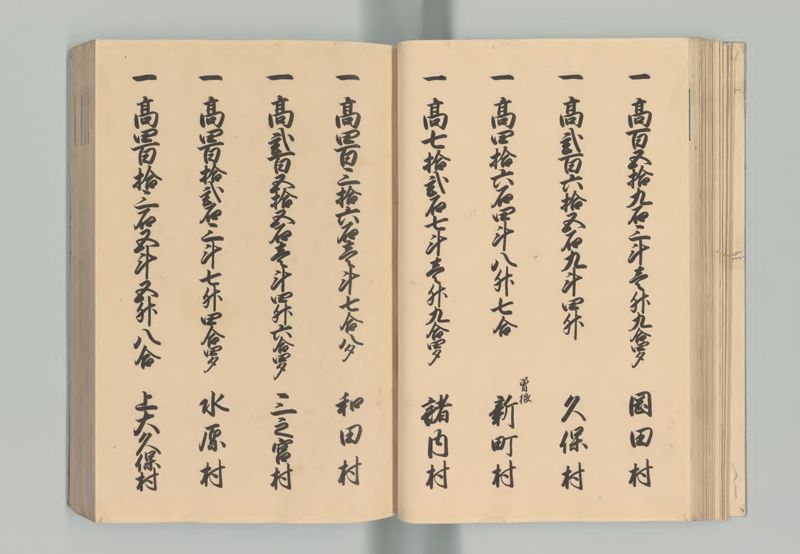 一 高百五拾九石三斗壱升九合四夕 岡田村
一 高弐百六拾五石九斗四升 久保村
一 高四拾六石四斗八升七合 曽根 新町村
一 高七拾弐石七斗壱升九合四夕 諸内村
一 高四百三拾六石壱斗七合八夕 和田村
一 高弐百五拾五石壱斗四升六合四夕 三之宮村
一 高四百拾弐石三斗七升四合四夕 水原村
一 高四百拾三石五斗五升八合 上大久保村